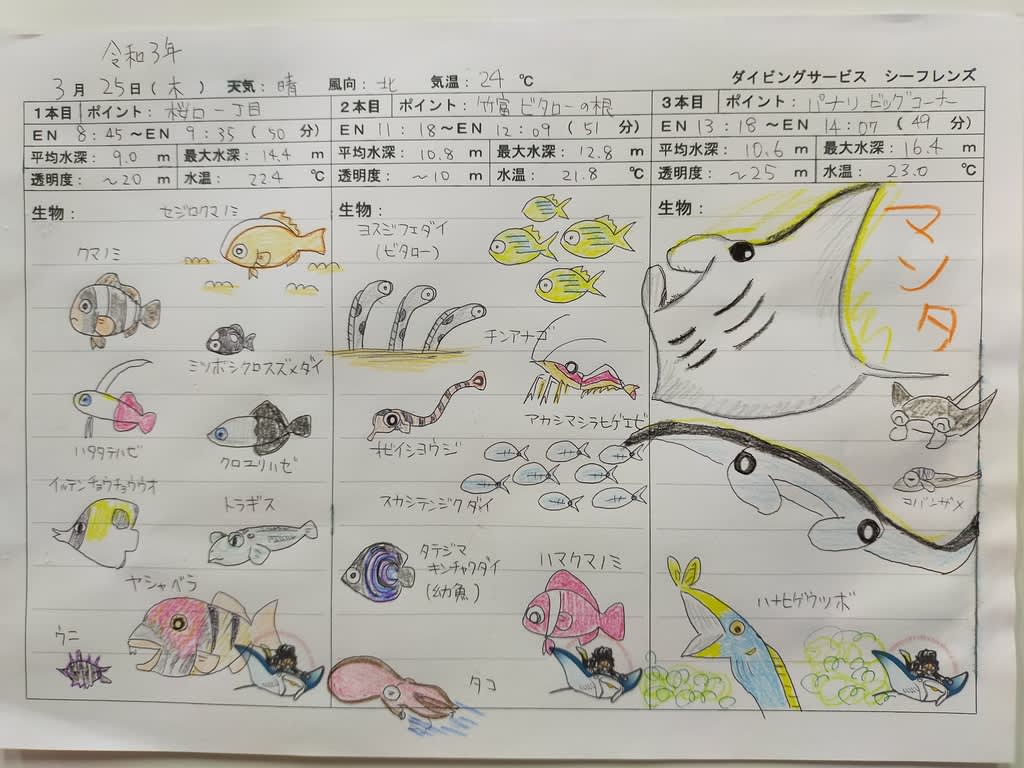 令和3年
3月 25日(木) 天気：晴 風向：北 気温：24 ℃ ダイビングサービス シーフレンズ
1本目 ポイント：桜口一丁目
EN 8：45～EN 9：35（50 分）
平均水深：9.0 m 最大水深：14.4 m
透明度：～20 m 水温：22.4 ℃
生物：
セジロクマノミ
クマノミ
ミツボシクロスズメダイ
ハタタテハゼ
クロユリハゼ
イッテンチョウチョウウオ
トラギス
ヤシャベラ
ウニ
2本目 ポイント：竹富 ビタローの根
EN 11：18～EN 12：09（51 分）
平均水深：10.8 m 最大水深：12.8 m
透明度：～10 m 水温：21.8 ℃
生物：
ヨスジフエダイ
(ビタロー)
チンアナゴ
アカシマシラヒゲエビ
オビイシヨウジ
スカシテンジクダイ
タテジマ
キンチャクダイ
(幼魚)
ハマクマノミ
タコ
3本目 ポイント：パナリ ビッグコーナー
EN 13：18～EN 14：07（49 分）
平均水深：10.6 m 最大水深：16.4 m
透明度：～25 m 水温：23.0 ℃
生物：
マンタ
コバンザメ
ハナヒゲウツボ